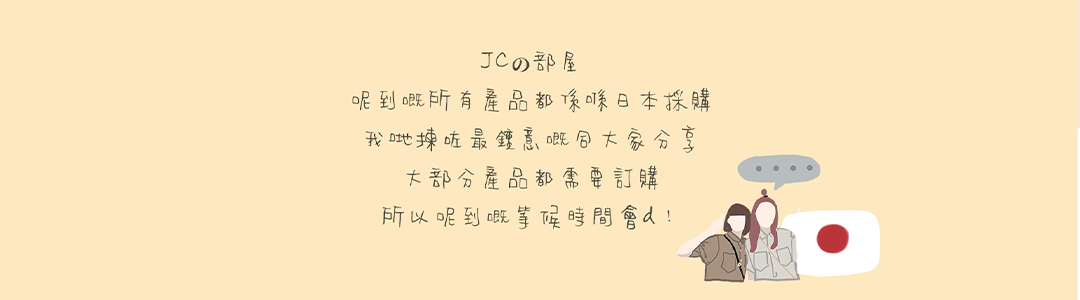 JCの部屋
呢到嘅所有產品都係喺日本採購
我哋揀咗最鐘意嘅同大家分享
大部分產品都需要訂購
所以呢到嘅等候時間會d！